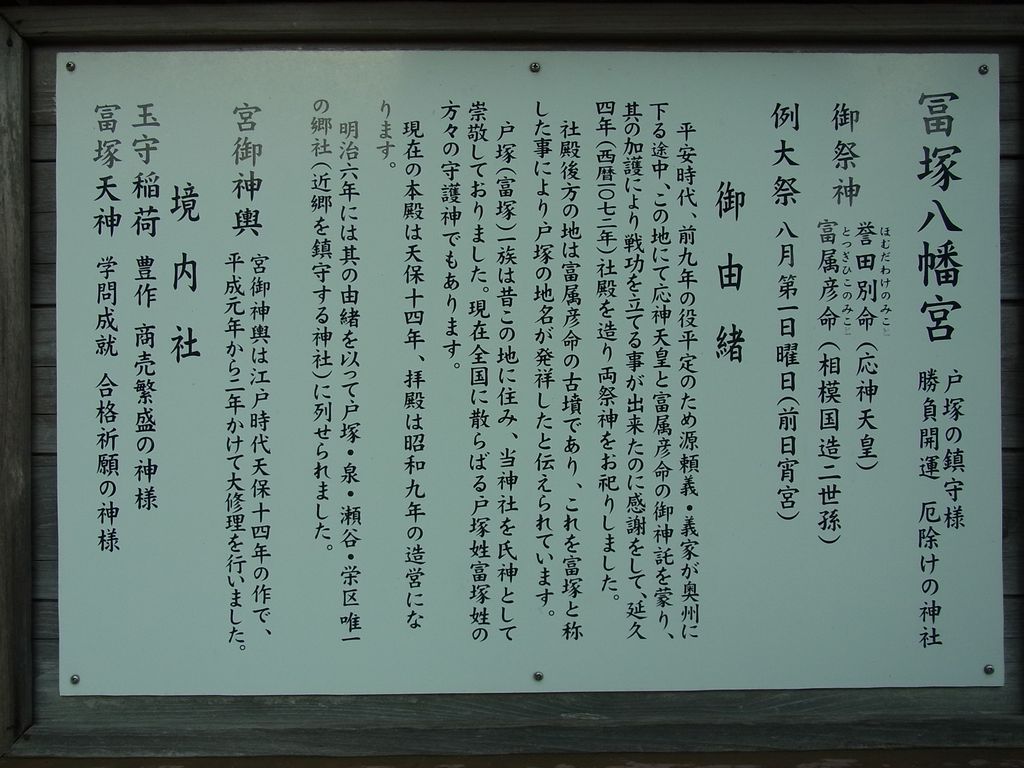 冨塚八幡宮
戸塚の鎮守様
勝負開運 厄除けの神社
御祭神
ほむだわけのみこと
誉田別命(応神天皇)
とつぎひこのみこと
富属彦命(相模国造二世孫)
例大祭 八月第一日曜日(前日宵宮)
御由緒
平安時代、前九年の役平定のため源頼義・義家が奥州に
下る途中、この地にて応神天皇と富属彦命の御神託を蒙り、
其の加護により戦功を立てる事が出来たのに感謝をして、延久
四年(西暦一〇七二年)社殿を造り両祭神をお祀りしました。
社殿後方の地は富属彦命の古墳であり、これを冨塚と称
した事により戸塚の地名が発祥したと伝えられています。
戸塚(富塚)一族は昔この地に住み、当神社を氏神として
崇敬しておりました。現在全国に散らばる戸塚姓富塚姓の
方々の守護神でもあります。
現在の本殿は天保十四年、拝殿は昭和九年の造営にな
ります。
明治六年には其の由緒を以って戸塚・泉・瀬谷・栄区唯一
の郷社(近郷を鎮守する神社)に列せられました。
宮御神輿
宮御神輿は江戸時代天保十四年の作で、
平成元年から二年かけて大修理を行いました。
境内社
玉守稲荷 豊作 商売繁盛の神様
冨塚天神 学問成就 合格祈願の神様